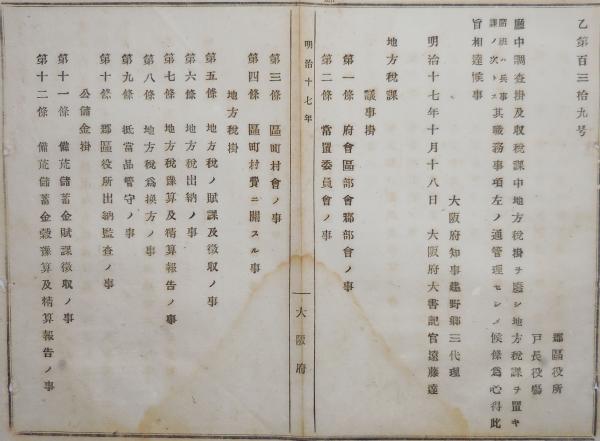 乙第百三拾九号
郡區役所
戸長役塲
廳中調査掛及収税課中地方税掛ヲ廢シ地方税課ヲ置キ
階班ハ兵事課ノ次トス其職務事項左ノ通管理セシメ候條爲心得此
旨相達候事
大阪府知事建野郷三代理
明治十七年十月十八日 大阪府大書記官遠藤達
地方税課
議事掛
第一條 府會區部會郡部會ノ事
第二條 常置委員會ノ事
明治十七年
大阪府
第三條 區町村會ノ事
第四條 區町村費ニ關スル事
地方税掛
第五條 地方税ノ賦課及徴収ノ事
第六條 地方税出納ノ事
第七條 地方税豫算及精算報告ノ事
第八條 地方税爲換方ノ事
第九條 抵當品管守ノ事
第十條 郡區役所出納監査ノ事
公儲金掛
第十一條 備荒儲蓄金賦課徴収ノ事
第十二條 備荒儲蓄金穀豫算及精算報告ノ事